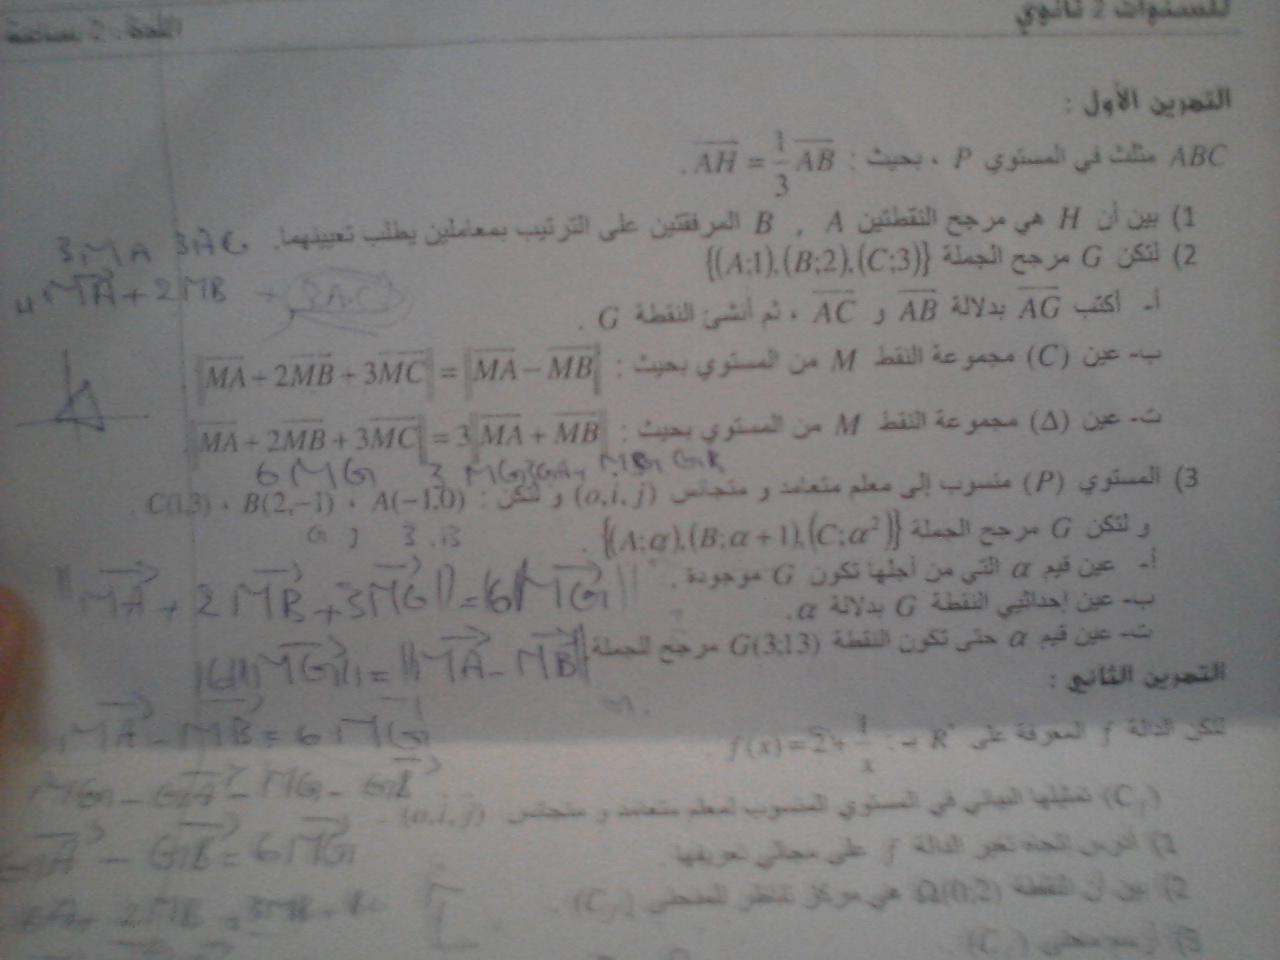 للسنوات 2 ثانوي
المدة : 2 ساعة
التمرين الأول :
ABC مثلث في المستوي P ، بحيث : \overrightarrow{AH} = \frac{1}{3} \overrightarrow{AB} .
1) بين أن H هي مرجح النقطتين A , B المرفقتين على الترتيب بمعاملين يطلب تعيينهما.
3MA 3AC
2) لتكن G مرجح الجملة {(A;1),(B;2),(C;3)}
\overrightarrow{MA} + 2MB + 3AC
أ- أكتب \overrightarrow{AG} بدلالة \overrightarrow{AB} و \overrightarrow{AC} ، ثم أنشئ النقطة G .
ب- عين (C) مجموعة النقط M من المستوي بحيث : ||\overrightarrow{MA} + 2\overrightarrow{MB} + 3\overrightarrow{MC}|| = ||\overrightarrow{MA} − \overrightarrow{MB}||
ت- عين (Δ) مجموعة النقط M من المستوي بحيث : ||\overrightarrow{MA} + 2\overrightarrow{MB} + 3\overrightarrow{MC}|| = 3||\overrightarrow{MA} + \overrightarrow{MB}||
6 MG 3
3) المستوي (P) منسوب إلى معلم متعامد و متجانس (o,i,j) و لتكن : A(-1,0) ، B(2,-1) ، C(1,3) .
و لتكن G مرجح الجملة {(A;α),(B;α+1),(C;α²)} .
أ- عين قيم α التي من أجلها تكون G موجودة .
||\overrightarrow{MA} + 2\overrightarrow{MB} + 3\overrightarrow{MG}|| = ||6\overrightarrow{MG}||
ب- عين إحداثيي النقطة G بدلالة α.
ت- عين قيم α حتى تكون النقطة G(3;13) مرجح الجملة
||6\overrightarrow{MG}|| = ||\overrightarrow{MA} - \overrightarrow{MB}||
التمرين الثاني :
\overrightarrow{MA} - \overrightarrow{MB} = 6\overrightarrow{MG}
لتكن الدالة f المعرفة على R* بـ : f(x) = 2 + \frac{1}{x} .
MG - \overrightarrow{GA} - MG - \overrightarrow{GB}
(C_f) تمثيلها البياني في المستوي المنسوب لمعلم متعامد و متجانس (o,i,j) .
1) أدرس اتجاه تغير الدالة f على مجالي تعريفها.
\overrightarrow{GA} - \overrightarrow{GB} = 6\overrightarrow{MG}
2) بين أن النقطة Ω(0;2) هي مركز تناظر للمنحني (C_f) .
3) أرسم منحني (C_f) .